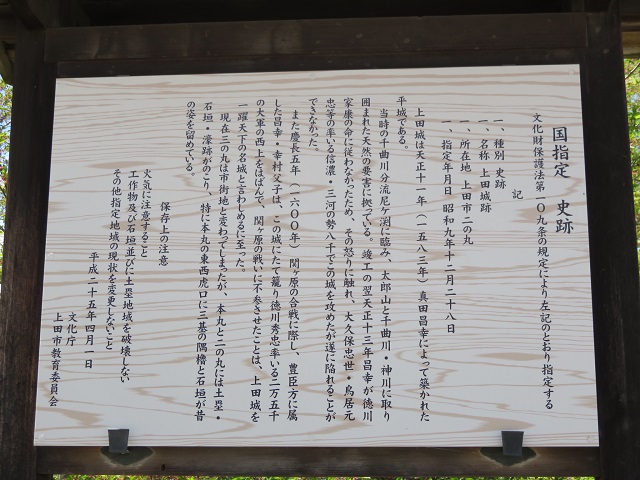 国指定　史跡
文化財保護法第一〇九条の規定により左記のとおり指定する
記
一、種別 史跡
一、名称 上田城跡
一、所在地 上田市二の丸
一、指定年月日 昭和九年十二月二十八日
上田城は天正十一年（一五八三年）真田昌幸によって築かれた
平城である。
当時の千曲川分流尼ケ渕に臨み、太郎山と千曲川・神川に取り
囲まれた天然の要害に拠っている。竣工の翌天正十三年昌幸が徳川
家康の命に従わなかったため、その怒りに触れ、大久保忠世・鳥居元
忠等の率いる信濃・三河の勢八千でこの城を攻めたが遂に陥れることが
できなかった。
また慶長五年（一六〇〇年）関ヶ原の合戦に際し、豊臣方に属
した昌幸・幸村父子は、この城にたて籠り徳川秀忠率いる三万五千
の大軍の西上をはばんで、関ヶ原の戦いに不参させたことは、上田城を
一躍天下の名城と言わしめるに至った。
現在三の丸は市街地と変わってしまったが、本丸と二の丸には土塁・
石垣・濠跡がのこり、特に本丸の東西虎口に三基の隅櫓と石垣が昔
の姿を留めている。
保存上の注意
火気に注意すること
工作物及び石垣並びに土塁地域を破壊しない
その他指定地域の現状を変更しないこと
平成二十五年四月一日
文化庁
上田市教育委員会